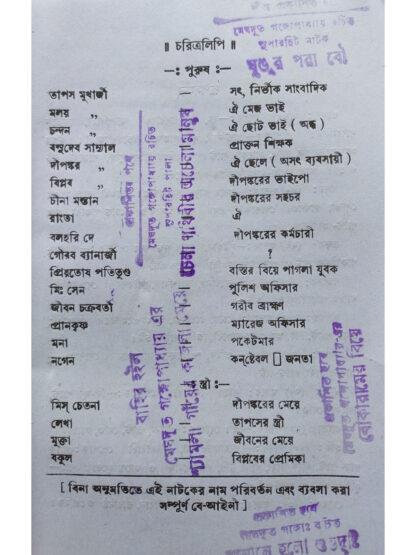 মেঘদূত গঙ্গোপাধ্যায় রচিত
সুপারহিট নাটক
ঘুঙুর পরা বৌ
॥ চরিত্রলিপি ॥
—: পুরুষ :—
তাপস মুখার্জী — সৎ, নির্ভীক সাংবাদিক
মলয় „ — ঐ মেজ ভাই
চন্দন „ — ঐ ছোট ভাই ( অন্ধ )
বসুদেব সান্যাল — প্রাক্তন শিক্ষক
দীপঙ্কর „ — ঐ ছেলে ( অসৎ ব্যবসায়ী )
বিপ্লব „ — দীপঙ্করের ভাইপো
চীনা মস্তান — দীপঙ্করের সহচর
রাংতা — ঐ
বলহরি দে — দীপঙ্করের কর্মচারী
গৌরব ব্যানার্জী — ?
প্রিয়তোষ পতিতুণ্ড — বস্তির বিয়ে পাগলা যুবক
মিঃ সেন — পুলিশ অফিসার
জীবন চক্রবর্তী — গরীব ব্রাহ্মণ
প্রানকৃষ্ণ — ম্যারেজ অফিসার
মনা — পকেটমার
নগেন — কনষ্টেবল ▯ জনতা
স্ত্রী :—
মিস্ চেতনা — দীপঙ্করের মেয়ে
লেখা — তাপসের স্ত্রী
মুক্তা — জীবনের মেয়ে
বকুল — বিপ্লবের প্রেমিকা
[ বিনা অনুমতিতে এই নাটকের নাম পরিবর্তন এবং ব্যবসা করা
সম্পূর্ণ বে-আইনী ]
বাহির হইল
মেঘদূত গঙ্গোপাধ্যায় এর
শ্যামলা গাঁয়ের কাজলা মেয়ে
চেনা পৃথিবীর অচেনা মানুষ
মেঘদূত গঙ্গোপাধ্যায় রচিত
সুপারহিট পালা
প্রকাশিত হবে
মেঘদূত গঙ্গোপাধ্যায়-এর
বোকারামের বিয়ে
প্রকাশিত হবে
মেঘদূত গঙ্গোঃ রচিত